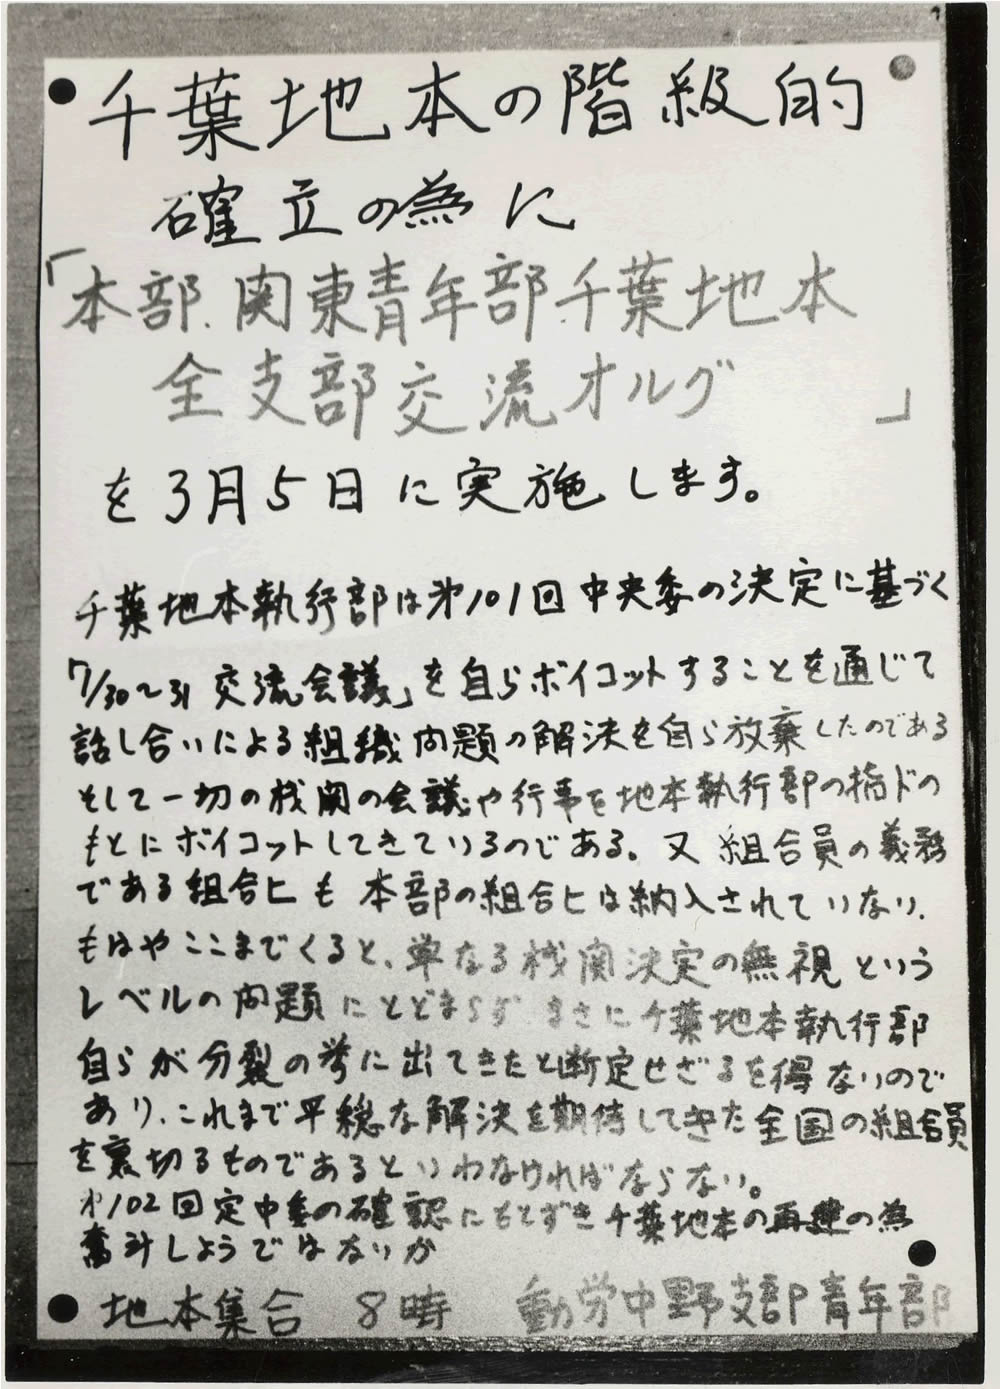 千葉地本の階級的
確立の為に
「本部、関東青年部千葉地本
全支部交流オルグ 」
を3月5日に実施します。
千葉地本執行部は㐧101回中央委の決定に基づく
7/30〜31交流会議」を自らボイコットすることを通じて
話し合いによる組織問題の解決を自ら放棄したのである
そして一切の機関の会議や行事を地本執行部の指ドの
もとにボイコットしてきているのである。又組合員の義務
である組合ヒも本部の組合ヒは納入されていない、
もはやここまでくると、単なる機関決定の無視という
レベルの問題にとどまらず まさに千葉地本執行部
自らが分裂の挙に出てきたと断定せざるを得ないので
あり、これまで平穏な解決を期待してきた全国の組合員
を裏切るものであるといわなければならない。
㐧102回定中委の確認にもとずき千葉地本の再建の為
奮斗しようではないか
地本集合 8時 動労中野支部青年部